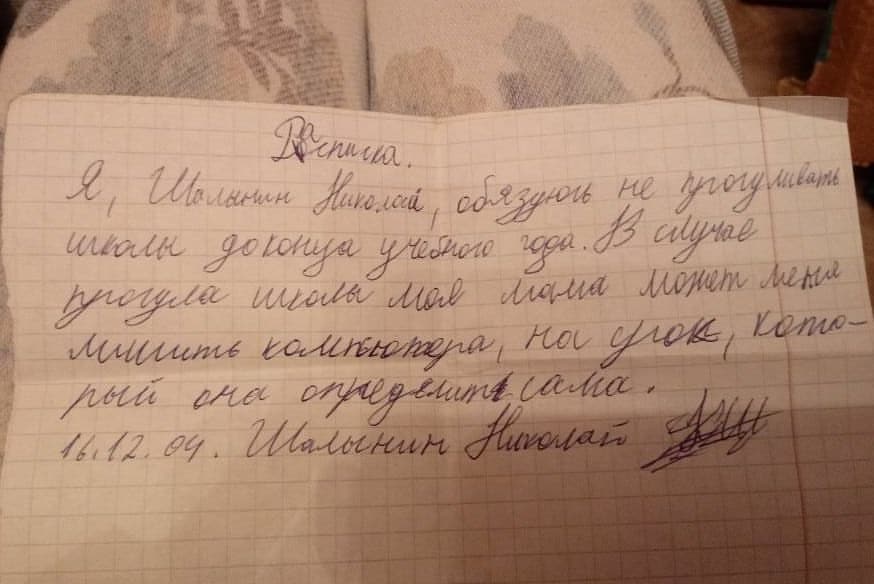 Расписка.
Я, Шалынин Николай, обязуюсь не прогуливать
школы до конца учебного года. В случае
прогула школы моя мама может меня
лишить компютера, на урок, кото-
рый она определить сама.
16.12.04. Шалынин Николай